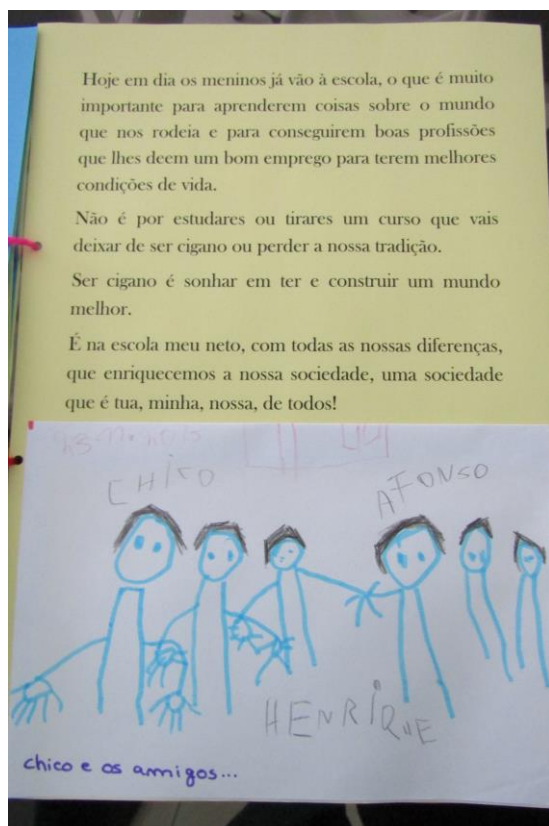 Hoje em dia os meninos já vão à escola, o que é muito
importante para aprenderem coisas sobre o mundo
que nos rodeia e para conseguirem boas profissões
que lhes deem um bom emprego para terem melhores
condições de vida.
Não é por estudares ou tirares um curso que vais
deixar de ser cigano ou perder a nossa tradição.
Ser cigano é sonhar em ter e construir um mundo
melhor.
É na escola meu neto, com todas as nossas diferenças,
que enriquecemos a nossa sociedade, uma sociedade
que é tua, minha, nossa, de todos!
CHICO
AFONSO
HENRIQUE
chico e os amigos...